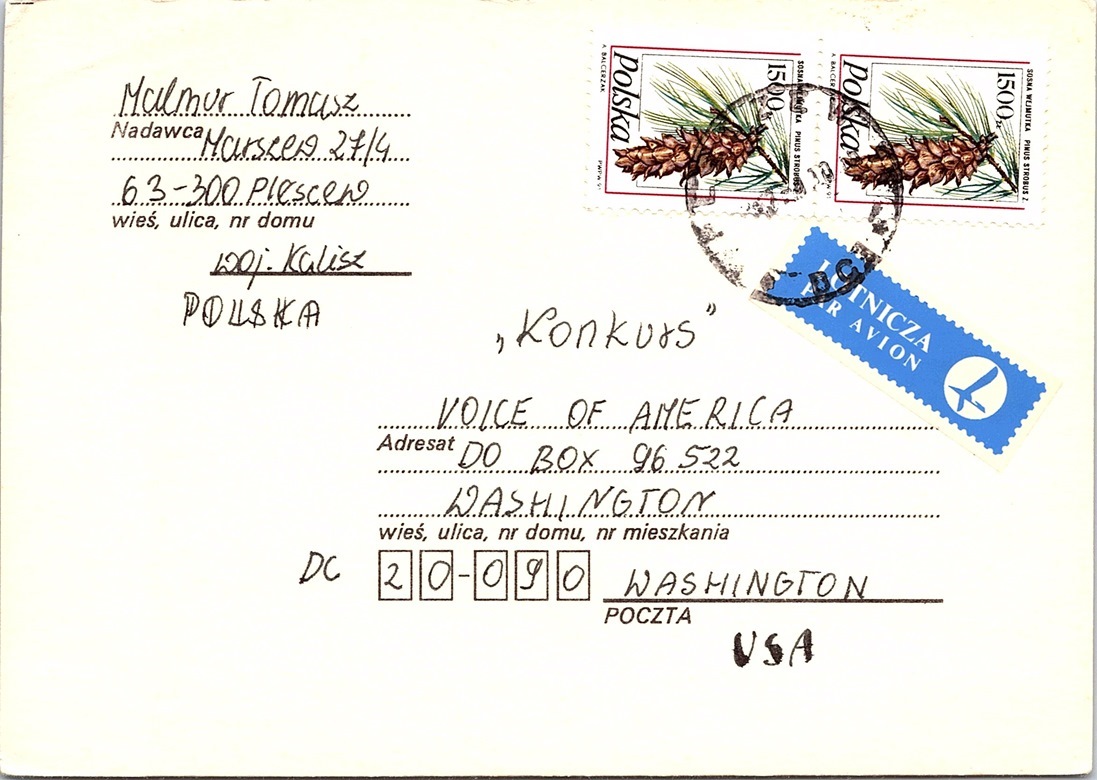 Malmur Tomasz
Nadawca
Marszew 27/4
63-300 Pleszew
wieś, ulica, nr domu
woj. Kalisz
POLSKA
A. BALCERZAK
Polska
1500 zł
SOSNA WEJMUTKA PINUS STROBUS
PWPW 91
A. BALCERZAK
Polska
1500 zł
SOSNA WEJMUTKA PINUS STROBUS Z.
LOTNICZA
PAR AVION
„Konkurs”
VOICE OF AMERICA
Adresat
PO BOX 96 522
WASHINGTON
wieś, ulica, nr domu, nr mieszkania
DC 20-090 WASHINGTON
POCZTA
USA